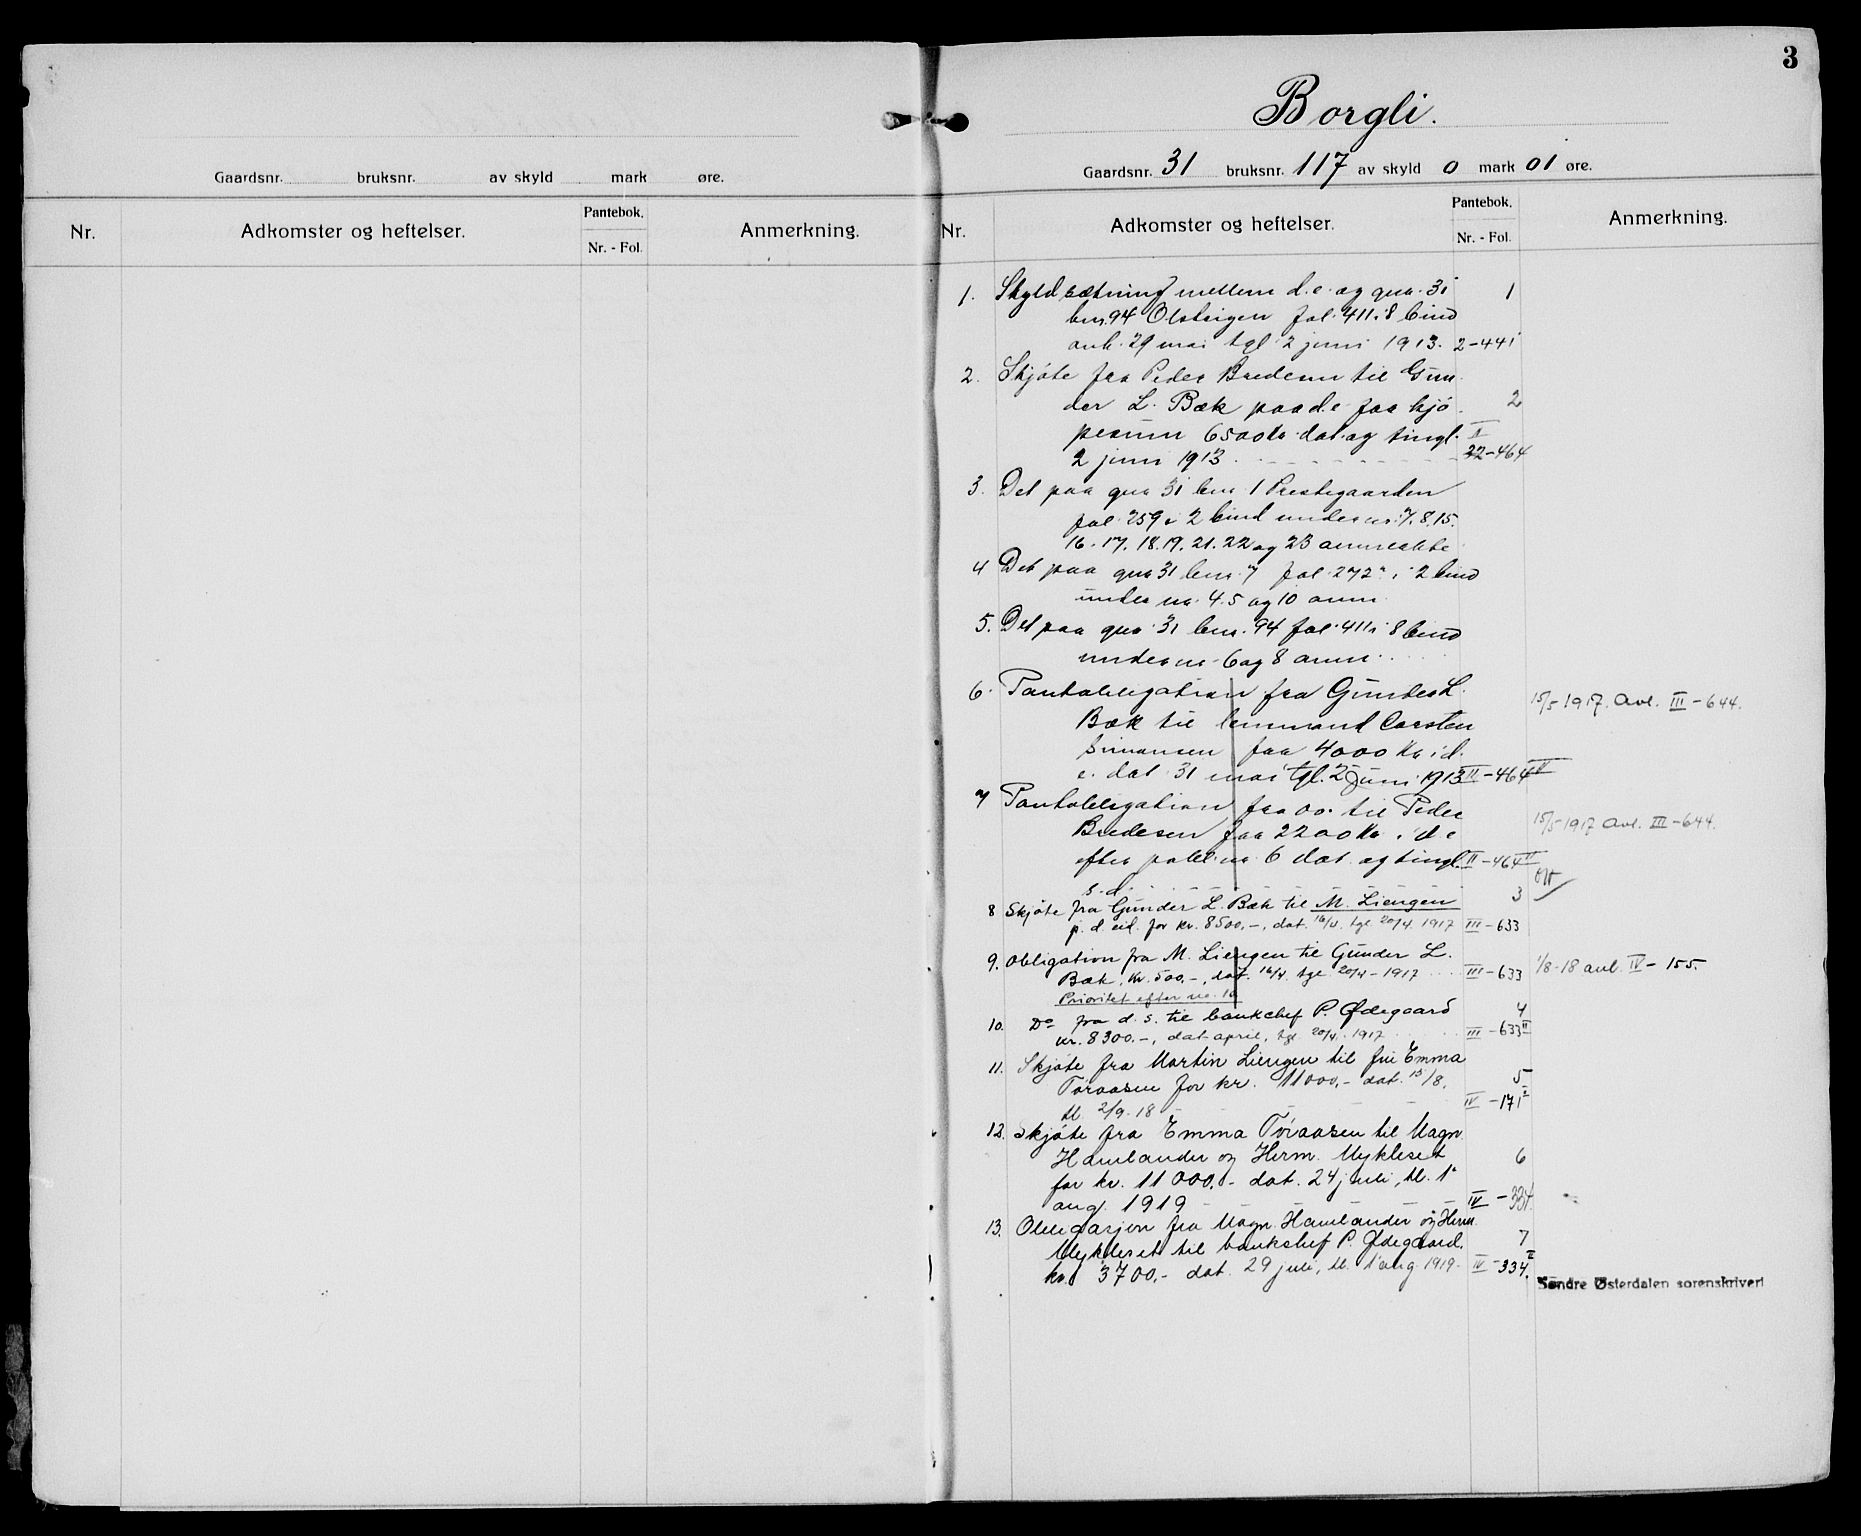 3
Borgli.
Gaardsnr. bruksnr. av skyld mark øre.
Nr. Adkomster og heftelser. Pantebok. Nr. - Fol. Anmerkning.
Gaardsnr. 31 bruksnr. 117 av skyld 0 mark 01 øre.
Nr. Adkomster og heftelser. Pantebok. Nr. - Fol. Anmerkning.
1. Skyldsætning mellem d.e. og gnr. 31 1
bnr. 94 fol. 411 i 8 bind
29 mai tgl 2 juni 1913. 2-441
2. Skjøte fra Peder Bredesen til Gun
der L. Bæk paa d.e. for kjø 2
pesum 6500 kr dat. og tingl. II
2 juni 1913 - 464
3. Det paa gnr 31 bnr 1 Prestegaarden
fol. 259 i 2 bind under nr. 7. 8. 15.
16. 17. 18. 19. 21. 22 og 23 anmerkte
4 Det paa gnr 31 bnr. 7 fol. 272 i 2 bind
under nr. 4. 5 og 10 anm
5. Det paa gnr. 31 bnr. 94 fol. 411 i 8 bind
under nr 6 og 8 anm.
6. Pantobligation fra Gunder L. 15/5 1917. Avl. III - 644.
Bæk til Carsten
Simonsen for 4000 kr i d.
e. dat 31 mai tgl. 2 juni 1913 II - 464
7 Pantobligation fra do. til Peder
Bredesen for 2200 kr i d e 15/5 1917 Avl. III - 644.
efter nr. 6 dat. og tingl. II - 464 II
s.d. 3
8 Skjøte fra Gunder L. Bæk til M. Liengen
p. d. eid. for kr. 8500.-, dat. 16/4. tgl. 20/4 1917 III - 633
9. Obligation fra M. Liengen til Gunder L.
Bæk, kr. 500.-, dat. 16/4. tgl. 20/4 - 1917 III - 633 1/8-18 avl. IV - 155.
Prioritet efter no. 10
10. Do fra d. s. til bankchef P. Ødegaard 4
kr. 8300.-, dat april, tgl. 20/4. 1917 III - 633 II
11. Skjøte fra Martin Liengen til fru Emma
Toraasen for kr. 11000.- dat. 15/8. 5
tl. 2/9. 18 IV - 171
12. Skjøte fra Emma Toraasen til Magn.
Hamlander og Herm. Mykleset 6
for kr. 11000.- dat. 24 juli, tl. 1
aug. 1919 IV - 334.
13. Obligasjon fra Magn. Hamlander og Herm.
Mykleset til bankchef P. Ødegaard. 7
kr. 3700.- dat. 29 juli, tl. 1 aug. 1919. IV - 334. II
Søndre Østerdalen sorenskriveri